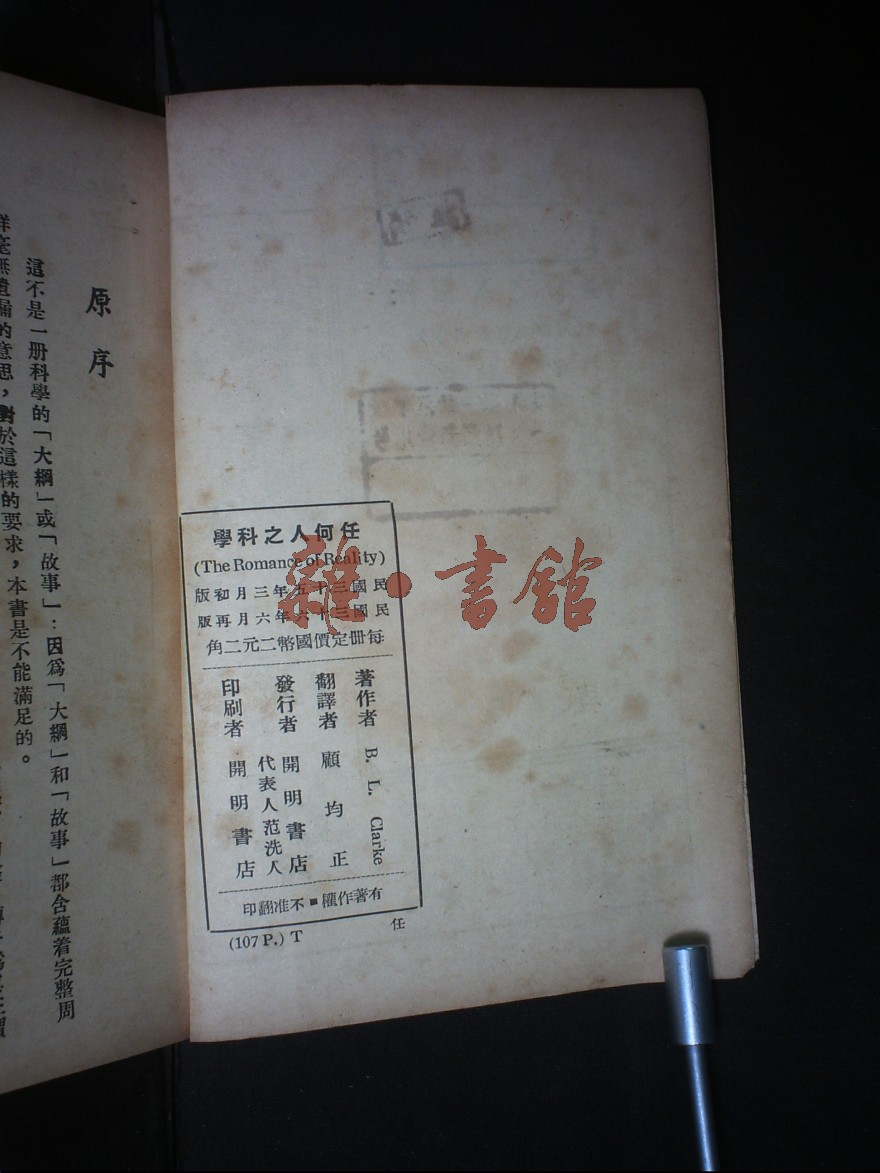 任何人之科學
(The Romance of Reality)
民國三十五年三月初版
民國三十六年六月再版
每册定價國幣二元二角
著作者 B. L. Clarke
翻譯者 顧均正
發行者 開明書店
代表人范洗人
印刷者 開明書店
有著作權■不准翻印
(107 P.) T
任
原序
這不是一册科學的「大綱」或「故事」：因爲「大綱」和「故事」都含蘊着完整周
詳毫無遺漏的意思，對於這樣的要求，本書是不能滿足的。
雜·書館